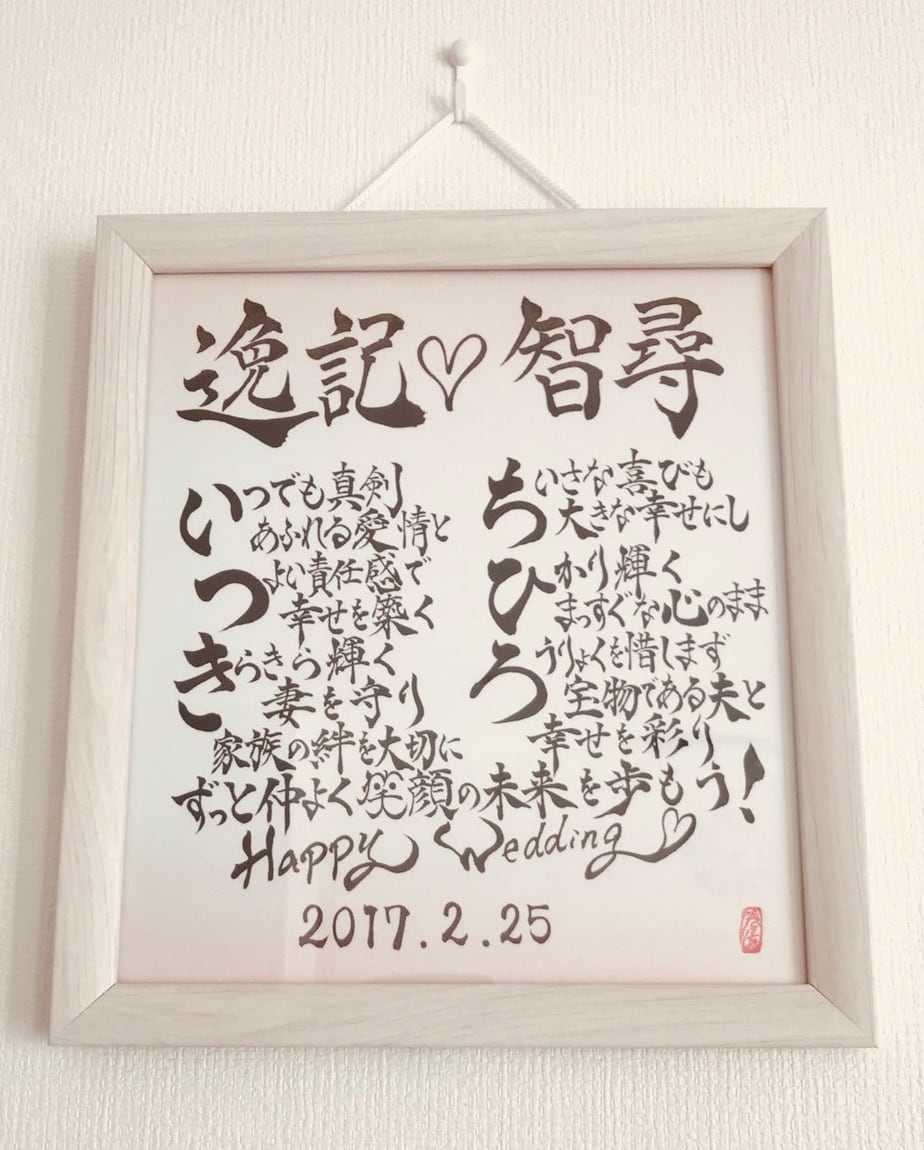 逸記♡智尋
いつでも真剣
あふれる愛情と
つよい責任感で
幸せを築く
きらきら輝く
妻を守り
家族の絆を大切に
ちいさな喜びも
大きな幸せにし
ひかり輝く
まっすぐな心のまま
ろうりょくを惜しまず
宝物である夫と
幸せを彩り
ずっと仲よく笑顔の未来を歩もう!
Happy Wedding
2017.2.25